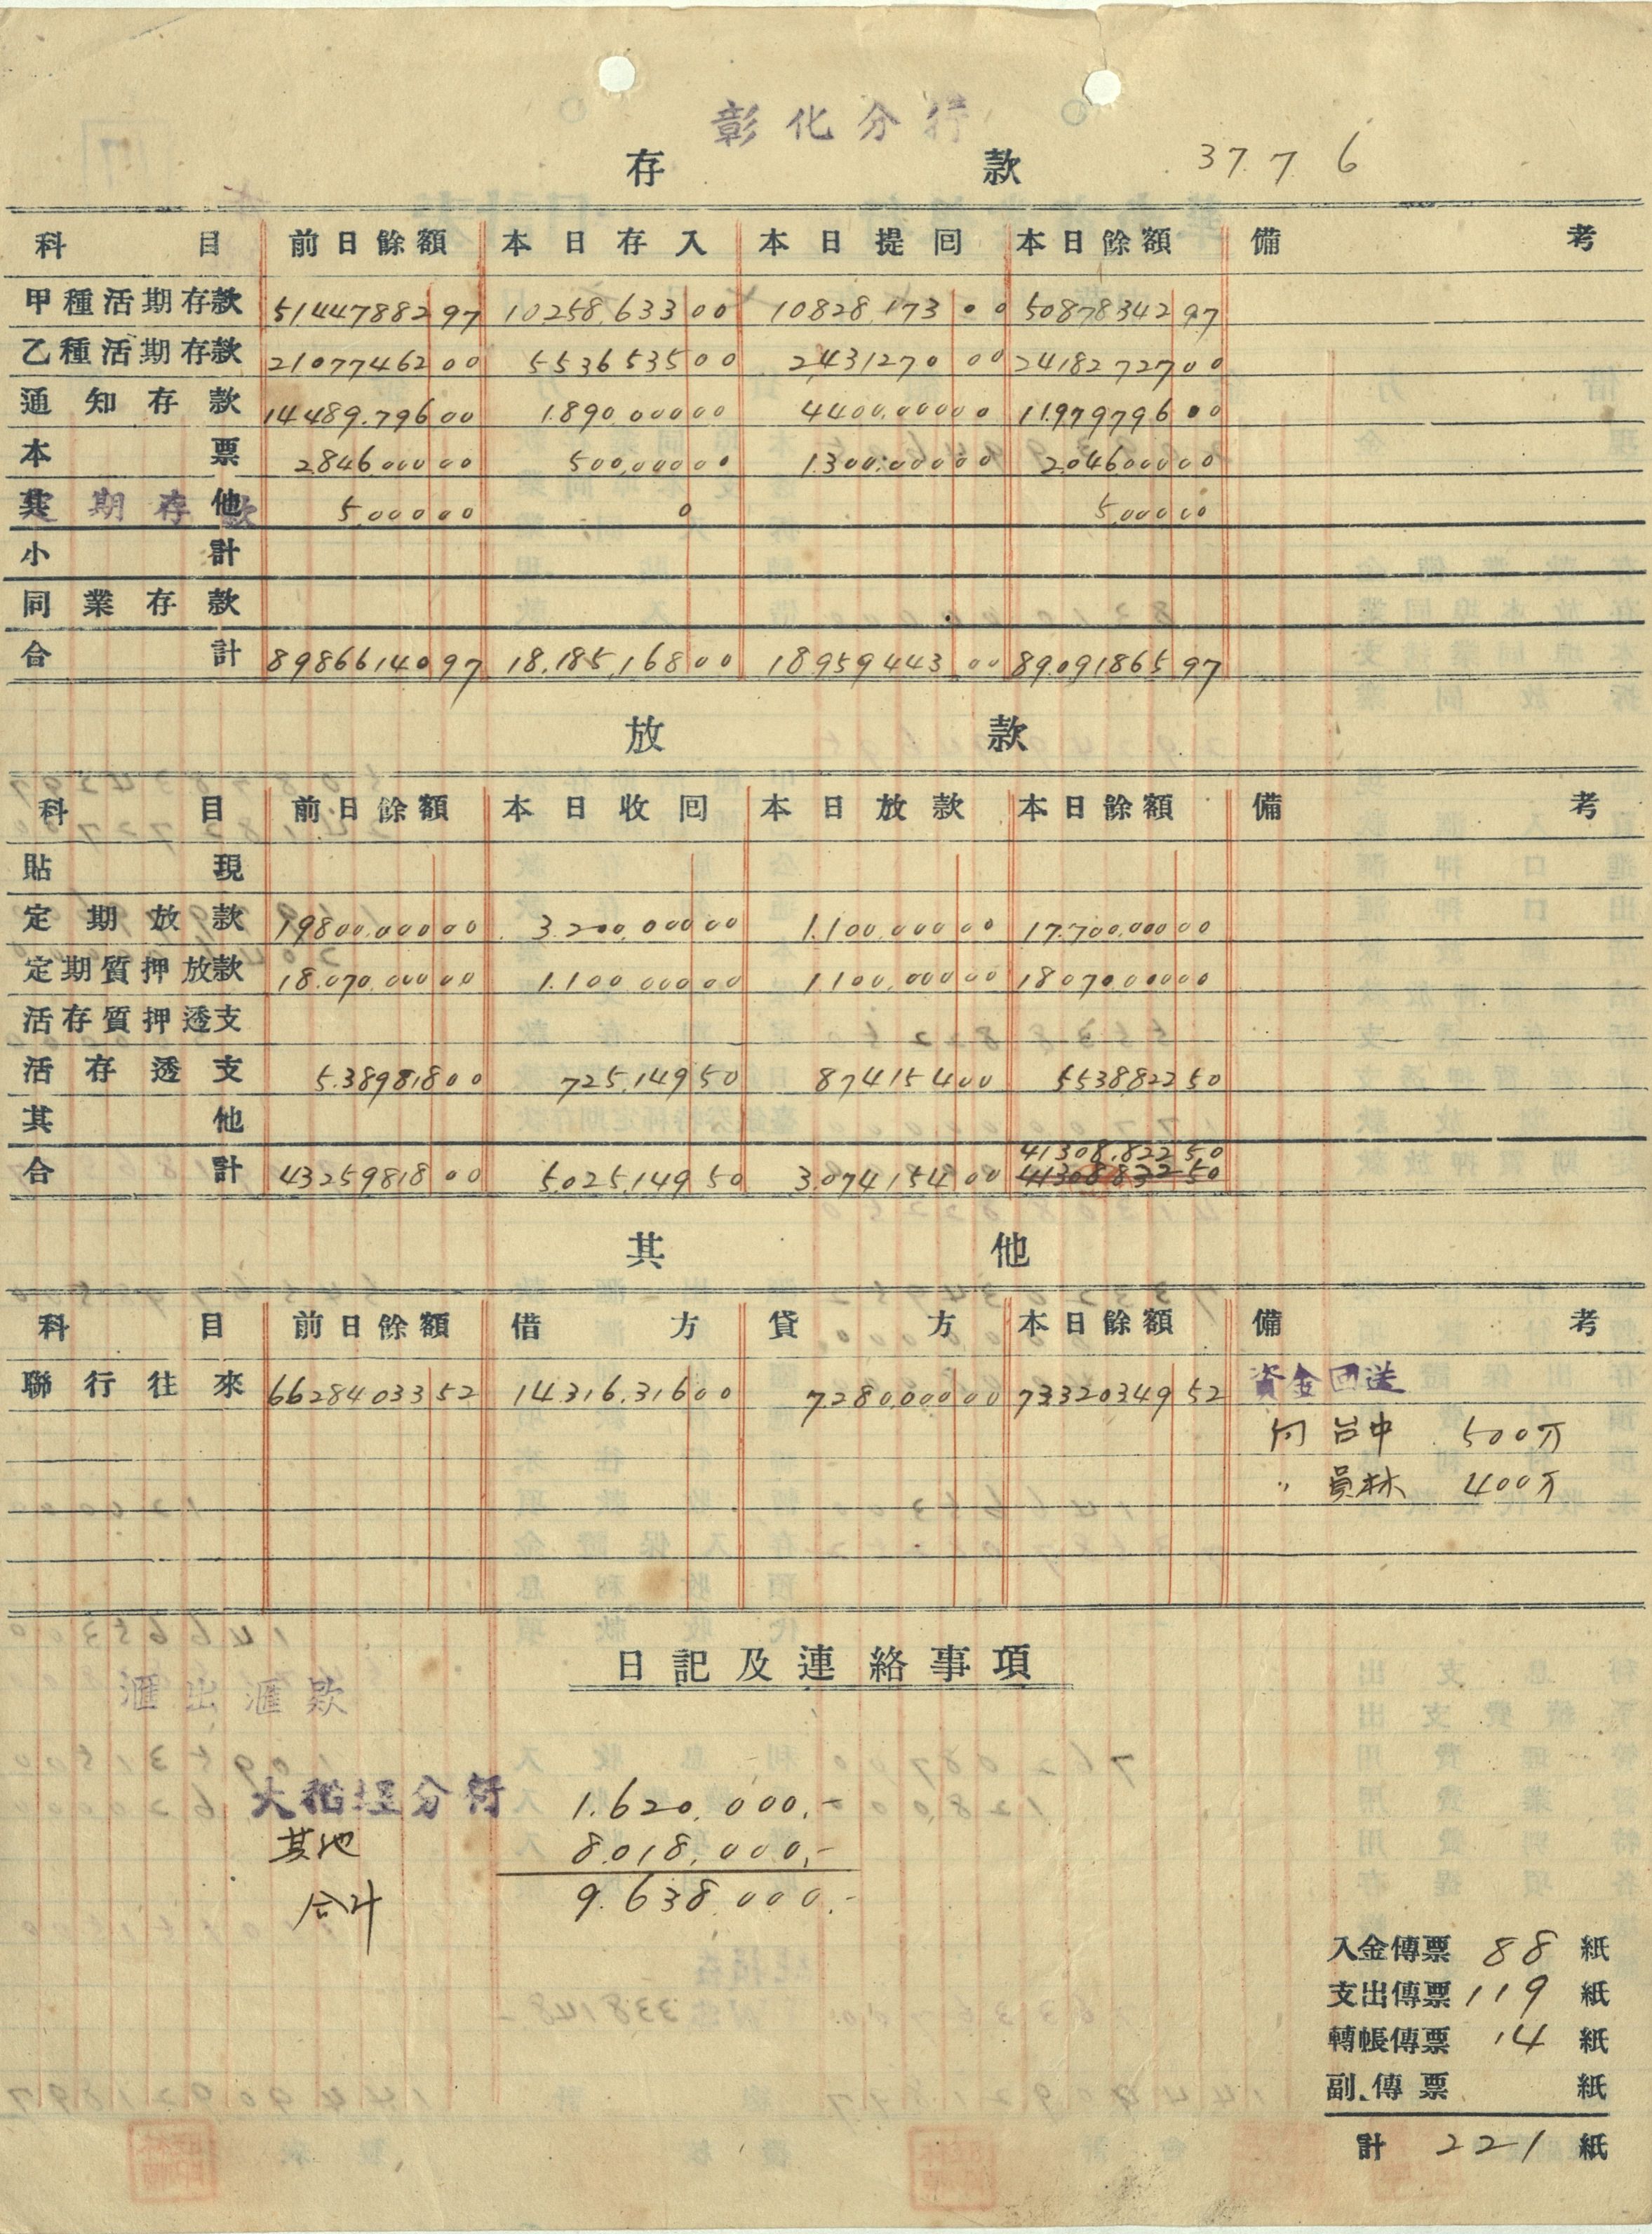 彰化分行
存 款 37. 7 6
科 目 前日餘額 本日存入 本日提回 本日餘額 備 考
甲種活期存款 51447882 97 10258.633 00 10828.173 00 50878342 97
乙種活期存款 21077462 00 5536535 00 2431270 00 24182727 00
通知存款 14489.796 00 1.890.000 00 4400.000 00 11.979796 00
本票 2846.000 00 500.000 00 1.300.000 00 2.046000 00
其他 定期存款 5.000 00 0 5.000 00
小計
同業存款
合計 89866140 97 18.185.168 00 18.959443 00 89.091865 97
放 款
科 目 前日餘額 本日收回 本日放款 本日餘額 備 考
貼現
定期放款 19800.000 00 3.200.000 00 1.100.000 00 17.700.000 00
定期質押放款 18.070.000 00 1.100.000 00 1100.000 00 18070.000 00
活存質押透支
活存透支 5.389818 00 725.149 50 874154 00 5538822 50
其他
41308.822 50
合計 43259818 00 5.025.149 50 3.074154 00 41308832 50
其 他
科 目 前日餘額 借方 貸方 本日餘額 備 考
聯行往來 66284033 52 14.316.316 00 7.280.000 00 73320349 52 資金回送
向 台中 500万
〃 員林 400万
日記及連絡事項
滙出滙款
大稻埕分行 1.620.000.-
其他 8.018.000.-
合計 9.638.000.-
入金傳票 88 紙
支出傳票 119 紙
轉帳傳票 14 紙
副傳票 紙
計 221 紙